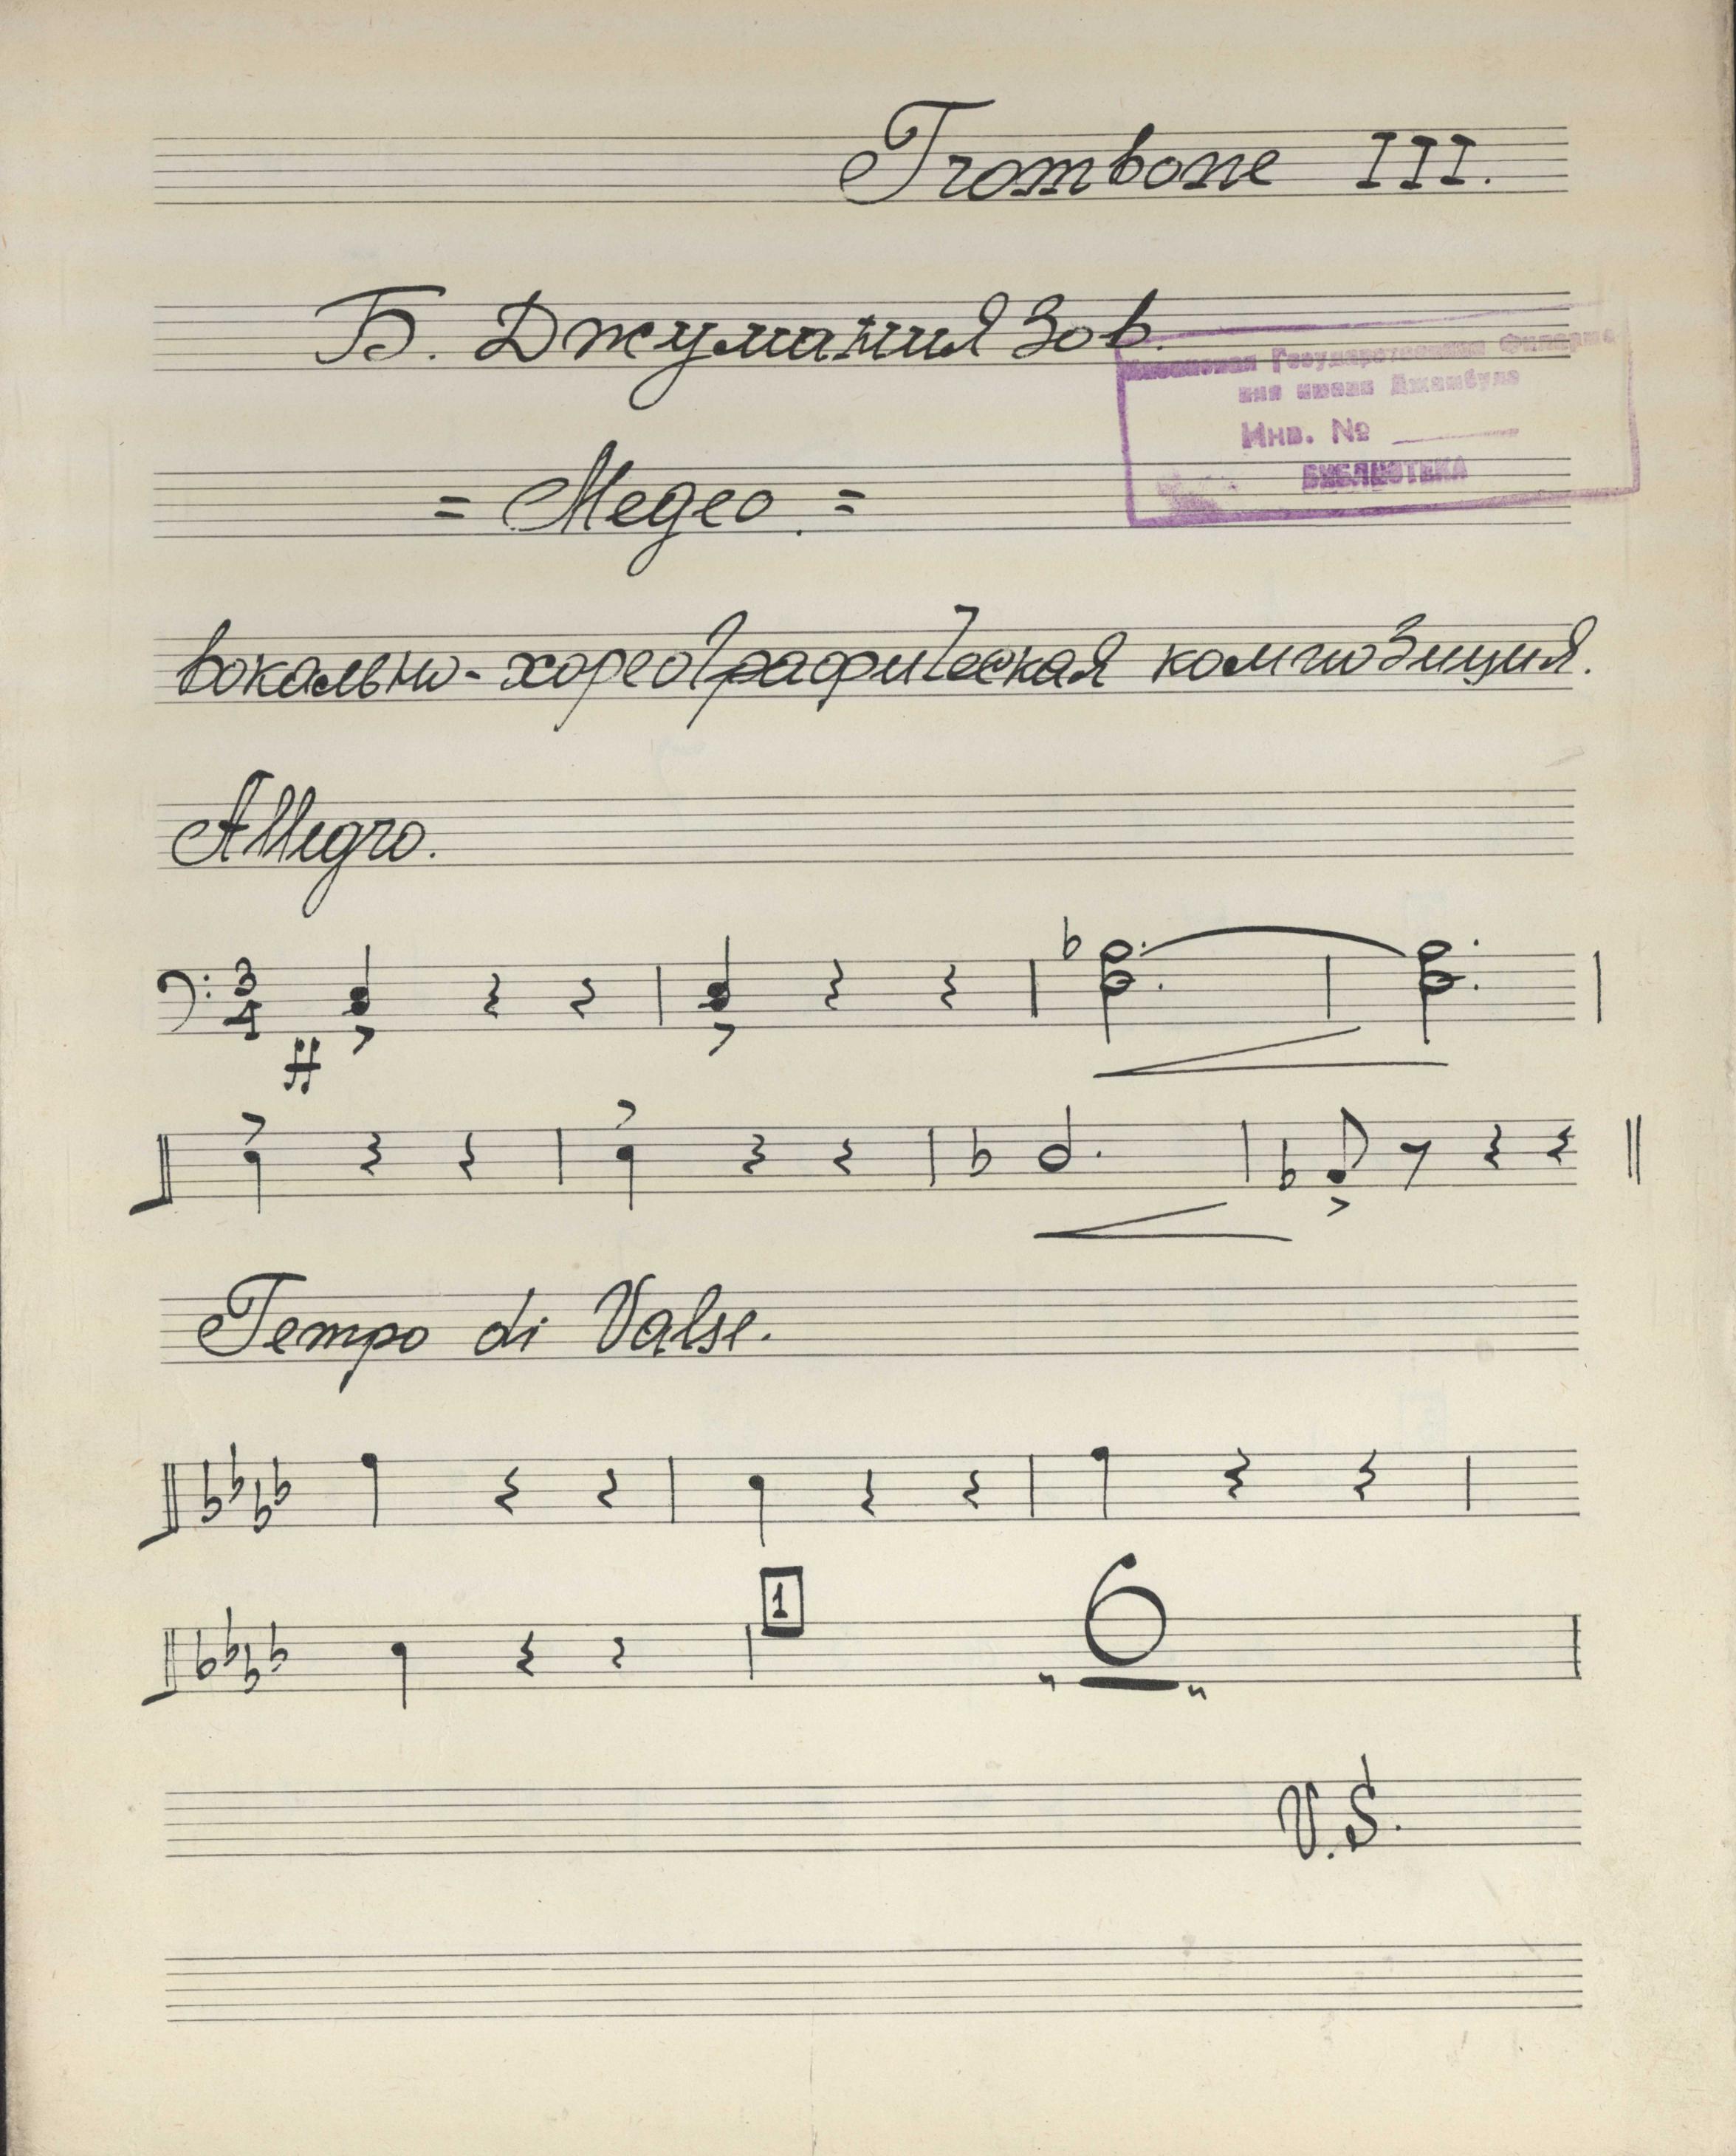 Trombone III.
Б. Джуманиязов.
Государственная Филармо
ния имени Джамбула
Инв. №
БИБЛИОТЕКА
= Медео. =
вокально-хореографическая композиция.
Allegro.
3
4
ff
Tempo di Valse.
1
6
V.S.